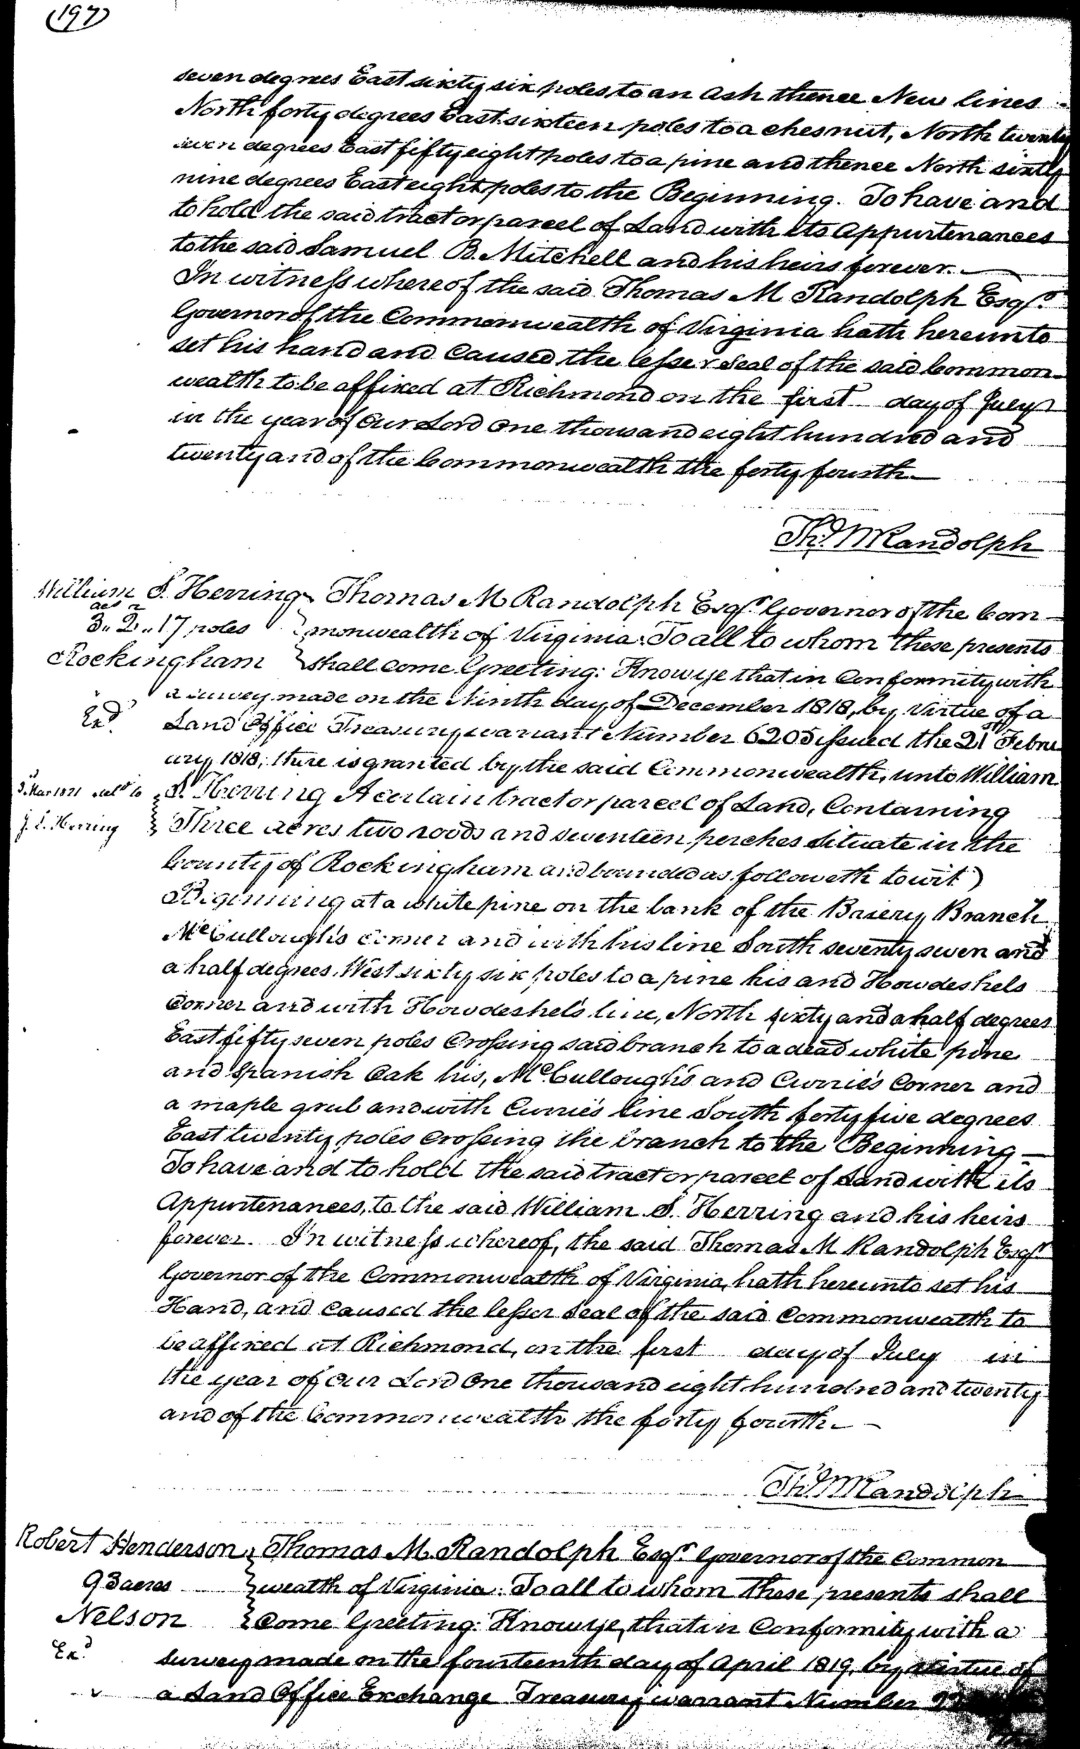 (197)
seven degrees East sixty six poles to an Ash thence New lines
North forty degrees East sixteen poles to a chesnut, North twenty
seven degrees East fifty eight poles to a pine and thence North sixty
nine degrees East eight poles to the Beginning. To have and
to hold the said tract or parcel of Land with its Appurtenances
to the said Samuel B. Mitchell and his heirs forever.
In witness whereof the said Thomas M Randolph Esqr.
Governor of the Commonwealth of Virginia hath hereunto
set his hand and Caused the lesser Seal of the said Common-
wealth to be affixed at Richmond on the first day of July
in the year of Our Lord One thousand eight hundred and
twenty and of the Commonwealth the forty fourth.
Th. M Randolph
William S. Herring
acs r
3.. 2.. 17 poles
Rockingham
Exd.
3d Mar 1821 deld to
J. S. Herring
Thomas M Randolph Esqr. Governor of the Com-
monwealth of Virginia: To all to whom these presents
shall come Greeting: Know ye that in Conformity with
a survey made on the Ninth day of December 1818, by Virtue of a
Land Office Treasury warrant Number 6205 issued the 21st Febru
ary 1818, there is granted by the said Commonwealth, unto William
S. Herring A certain tract or parcel of Land, Containing
Three acres two roods and seventeen perches Situate in the
County of Rockingham and bounded as followeth to wit)
Beginning at a white pine on the bank of the Briery Branch
McCullough's corner and with his line South seventy seven and
a half degrees West sixty six poles to a pine his and Howdeshels
Corner and with Howdeshel's line, North sixty and a half degrees
East fifty seven poles Crossing said branch to a dead white pine
and Spanish Oak his, McCullough's and Currie's Corner and
a maple grub and with Currie's line South forty five degrees
East twenty poles Crossing the branch to the Beginning-
To have and to hold the said tract or parcel of Land with its
Appurtenances, to the said William S. Herring and his heirs
forever. In witness whereof, the said Thomas M Randolph Esqr.
Governor of the Commonwealth of Virginia, hath hereunto set his
Hand, and Caused the lesser Seal of the said Commonwealth to
be affixed at Richmond, on the first day of July in
the year of Our Lord One thousand eight hundred and twenty
and of the Commonwealth the forty fourth.
Th. M Randolph
Robert Henderson
93 acres
Nelson
Exd.
Thomas M. Randolph Esqr. Governor of the Common
wealth of Virginia: To all to whom these presents shall
Come Greeting: Know ye, that in Conformity with a
survey made on the fourteenth day of April 1819, by virtue of
a Land Office Exchange Treasury warrant Number